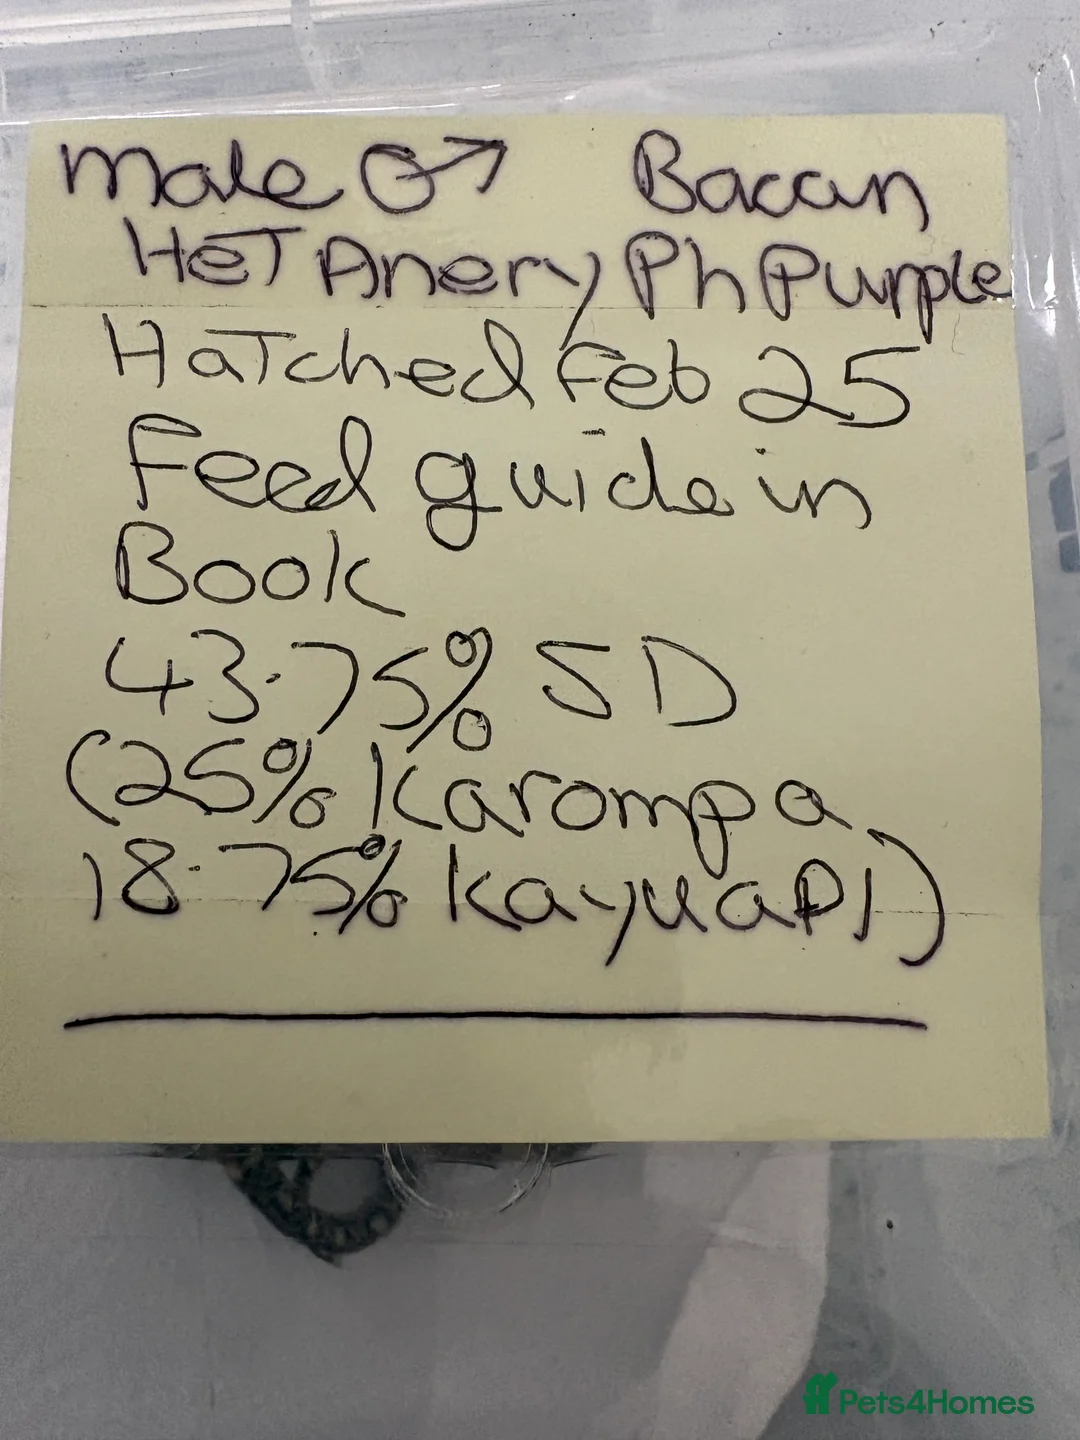 Male ♂ Bacan
HeT Anery Ph Purple
HaTched Feb 25
Feed guide in
Book
43.75% SD
(25% Karompa
18.75% KayuaPI)
Pets4Homes